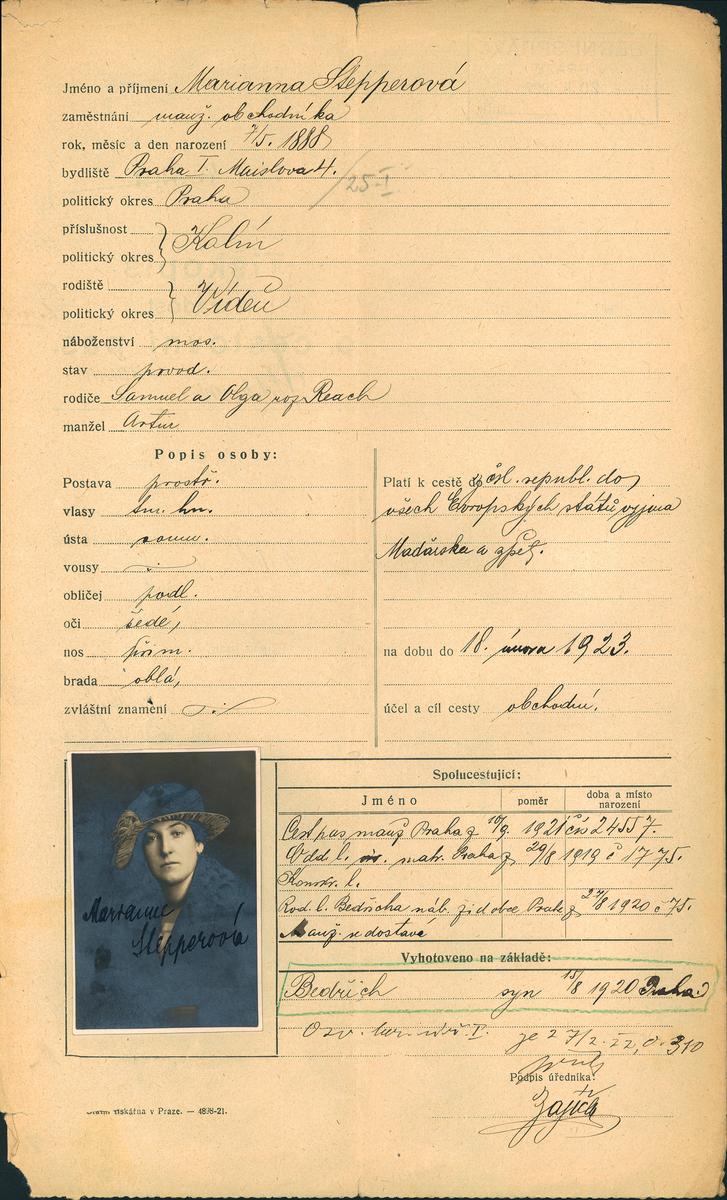 Jméno a příjmení Marianna Stepperová
zaměstnání manž. obchodníka
rok, měsíc a den narození 7/5. 1888
bydliště Praha I. Maislova 4.
/25-I
politický okres Praha
příslušnost
politický okres } Kolín
rodiště
politický okres } Vídeň
náboženství mos.
stav provd.
rodiče Samuel a Olga roz Reach
manžel Artur
Popis osoby:
Postava prostř.
vlasy tm. hn.
ústa soum.
vousy
obličej podl.
oči šedé,
nos přím.
brada oblá,
zvláštní znamení
Platí k cestě do z čsl. republ. do
všech Evropských států vyjma
Maďarska a zpět.
na dobu do 18. února 1923.
účel a cíl cesty obchodní.
Marianne
Stepperová
Spolucestující:
Jméno poměr doba a místo narození
Cest pas manž Praha z 10/9. 1921 čís 24557.
Odd l. matr. Praha z 29/8 1919 č 1775.
Konskr. l.
Rod. l. Bedřicha náb. žid obce Praha z 27/8 1920 č 75.
Manž. se dostavě
Vyhotoveno na základě:
Bedřich syn 15/8 1920 Praha
Osv. I. je z 7/2. 22, č. 310
Podpis úředníka:
Zajíček
Státní tiskárna v Praze. — 4898-21.